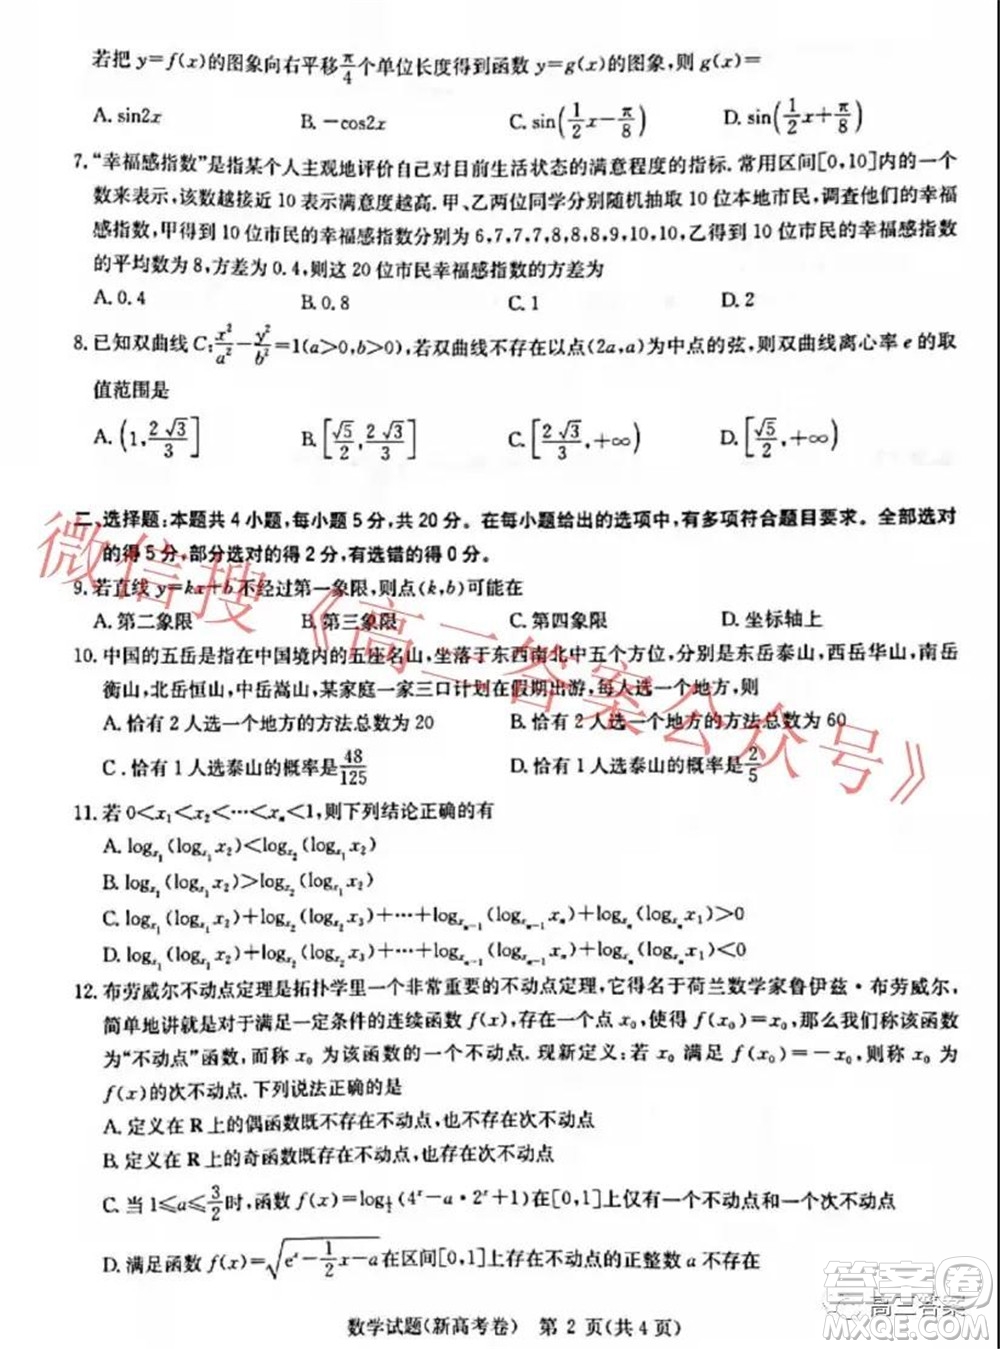 若把 y=f(x)的图象向右平移π/4个单位长度得到函数 y=g(x)的图象,则 g(x)=
A. sin2x B. -cos2x C. sin(1/2 x-π/8) D. sin(1/2 x+π/8)
7. “幸福感指数”是指某个人主观地评价自己对目前生活状态的满意程度的指标. 常用区间[0,10]内的一个
数来表示,该数越接近 10 表示满意度越高. 甲、乙两位同学分别随机抽取 10 位本地市民,调查他们的幸福
感指数,甲得到 10 位市民的幸福感指数分别为 6,7,7,7,8,8,8,9,10,10,乙得到 10 位市民的幸福感指数
的平均数为 8,方差为 0.4,则这 20 位市民幸福感指数的方差为
A. 0.4 B. 0.8 C. 1 D. 2
8. 已知双曲线 C:x²/a²-y²/b²=1(a>0,b>0),若双曲线不存在以点(2a,a)为中点的弦,则双曲线离心率 e 的取
值范围是
A. (1,2√3/3] B. [√5/2,2√3/3] C. [2√3/3,+∞) D. [√5/2,+∞)
二、选择题:本题共 4 小题,每小题 5 分,共 20 分。在每小题给出的选项中,有多项符合题目要求。全部选对
的得 5 分,部分选对的得 2 分,有选错的得 0 分。
9. 若直线 y=kx+b 不经过第一象限,则点(k,b)可能在
A. 第二象限 B. 第三象限 C. 第四象限 D. 坐标轴上
10. 中国的五岳是指在中国境内的五座名山,坐落于东西南北中五个方位,分别是东岳泰山,西岳华山,南岳
衡山,北岳恒山,中岳嵩山,某家庭一家三口计划在假期出游,每人选一个地方,则
A. 恰有 2 人选一个地方的方法总数为 20 B. 恰有 2 人选一个地方的方法总数为 60
C. 恰有 1 人选泰山的概率是48/125 D. 恰有 1 人选泰山的概率是2/5
11. 若 0<x₁<x₂<…<xₙ<1,则下列结论正确的有
A. log_{x₁}(log_{x₁}x₂)<log_{x₂}(log_{x₁}x₂)
B. log_{x₁}(log_{x₁}x₂)>log_{x₂}(log_{x₁}x₂)
C. log_{x₁}(log_{x₁}x₂)+log_{x₂}(log_{x₂}x₃)+…+log_{xₙ₋₁}(log_{xₙ₋₁}xₙ)+log_{xₙ}(log_{xₙ}x₁)>0
D. log_{x₁}(log_{x₁}x₂)+log_{x₂}(log_{x₂}x₃)+…+log_{xₙ₋₁}(log_{xₙ₋₁}xₙ)+log_{xₙ}(log_{xₙ}x₁)<0
12. 布劳威尔不动点定理是拓扑学里一个非常重要的不动点定理,它得名于荷兰数学家鲁伊兹·布劳威尔,
简单地讲就是对于满足一定条件的连续函数 f(x),存在一个点 x₀,使得 f(x₀)=x₀,那么我们称该函数
为“不动点”函数,而称 x₀ 为该函数的一个不动点. 现新定义:若 x₀ 满足 f(x₀)=-x₀,则称 x₀ 为
f(x)的次不动点. 下列说法正确的是
A. 定义在 R 上的偶函数既不存在不动点,也不存在次不动点
B. 定义在 R 上的奇函数既存在不动点,也存在次不动点
C. 当 1≤a≤3/2时,函数 f(x)=log_{1/2}(4ˣ-a·2ˣ+1)在[0,1]上仅有一个不动点和一个次不动点
D. 满足函数 f(x)=√(eˣ-1/2 x-a)在区间[0,1]上存在不动点的正整数 a 不存在
数学试题(新高考卷) 第 2 页(共 4 页)
微信搜《高三答案公众号》
答案圈
高三答案